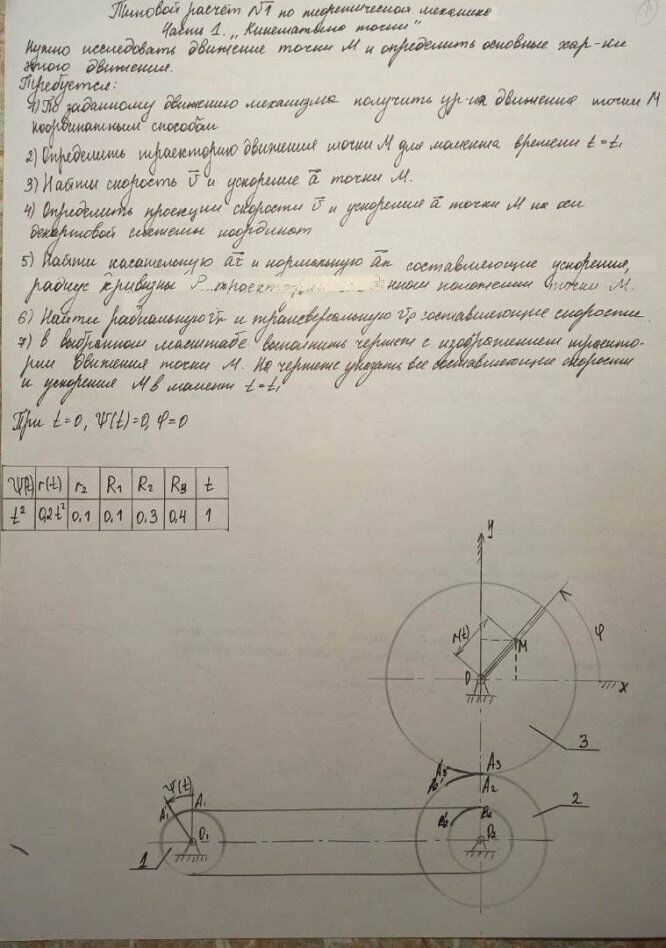 Типовой расчёт №1 по теоретической механике
Часть 1. „Кинематика точки"
Нужно исследовать движение точки М и определить основные хар-ки
этого движения.
Требуется:
1) По заданному движению механизма получить ур-ия движения точки М
координатным способом
2) Определить траекторию движения точки М для момента времени t = t₁
3) Найти скорость v̄ и ускорение ā точки М.
4) Определить проекции скорости v̄ и ускорение ā точки М на оси
декартовой системы координат
5) Найти касательную āτ и нормальную ān составляющие ускорения,
радиус кривизны ρ положении точки М.
6) Найти радиальную vr и трансверсальную vp составляющие скорости
7) В выбранном масштабе выполнить чертёж с изображением траекто-
рии движения точки М. На чертеже указать все составляющие скорости
и ускорения М в момент t = t₁
При t=0, Ψ(t)=0, φ=0
Ψ(t) r(t) r₂ R₁ R₂ R₃ t
t² 0,2t² 0,1 0,1 0,3 0,4 1
y
r(t)
M
φ
O
x
3
A₃' A₃
A₂' A₂
Ψ(t)
A₁' A₁
B₂' B₂
2
O₁
O₂
1